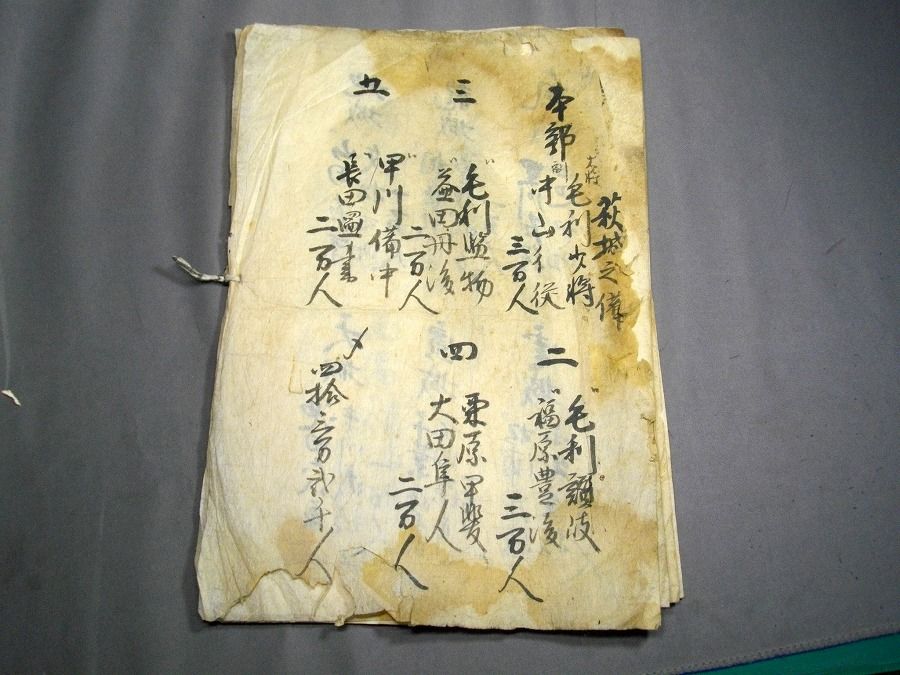 萩城之備
本郭
大将
毛利少将
副
中山行従
三百人
二
〃毛利讃岐
〃福原豊後
三百人
三
〃毛利監物
〃益田丹後
二百人
四
栗原甲斐
大田隼人
二百人
五
〃甲川備中
〃長田図書
二百人
〆四拾三万弐千人